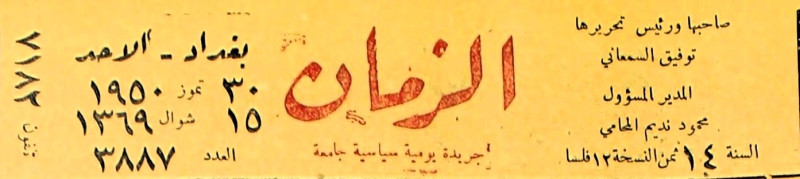 صاحبها ورئيس تحريرها
توفيق السمعاني
المدير المسؤول
محمود نديم المحامي
السنة ١٤ ثمن النسخة ١٢ فلسا
الزمان
جريدة يومية سياسية جامعة
بغداد - الاحد
٣٠ تموز ١٩٥٠
١٥ شوال ١٣٦٩
العدد ٣٨٨٧
تلفون ٨٢١٧